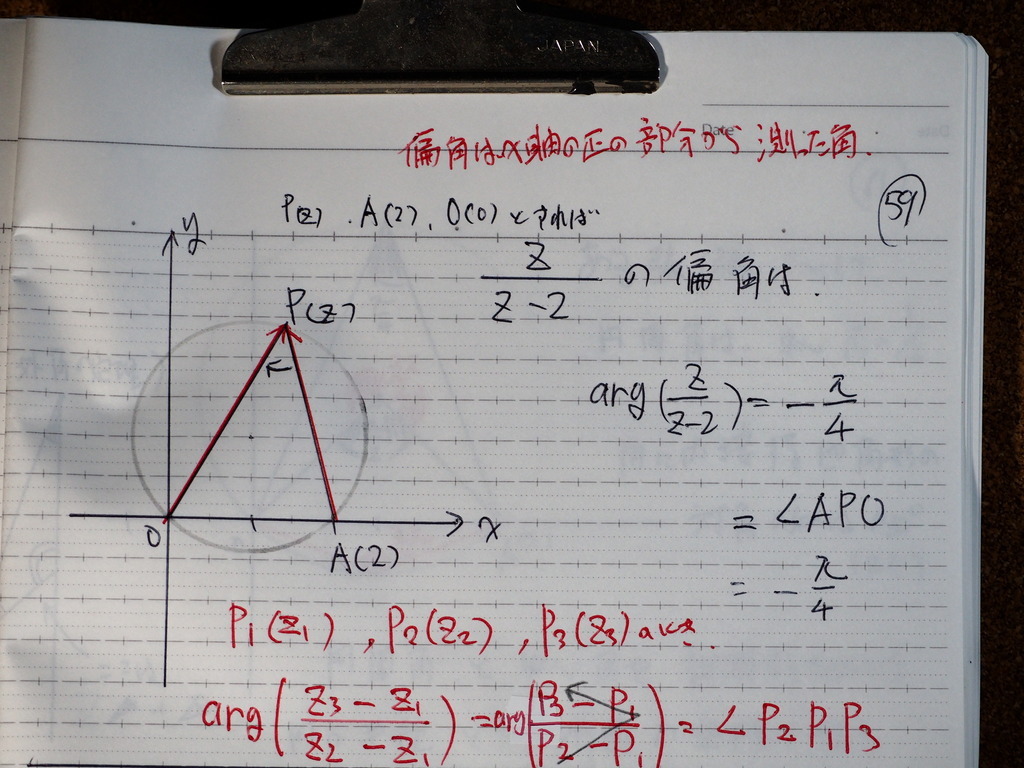 JAPAN
Date
偏角はx軸の正の部分から測った角.
59
P(z) . A(2), O(0) とすれば
y
z/(z-2) の偏角は.
P(z)
arg(z/(z-2)) = -π/4
= ∠APO
O
x
A(2)
= -π/4
P₁(z₁) , P₂(z₂) , P₃(z₃) のとき.
arg((z₃-z₁)/(z₂-z₁)) = arg((P₃-P₁)/(P₂-P₁)) = ∠P₂P₁P₃